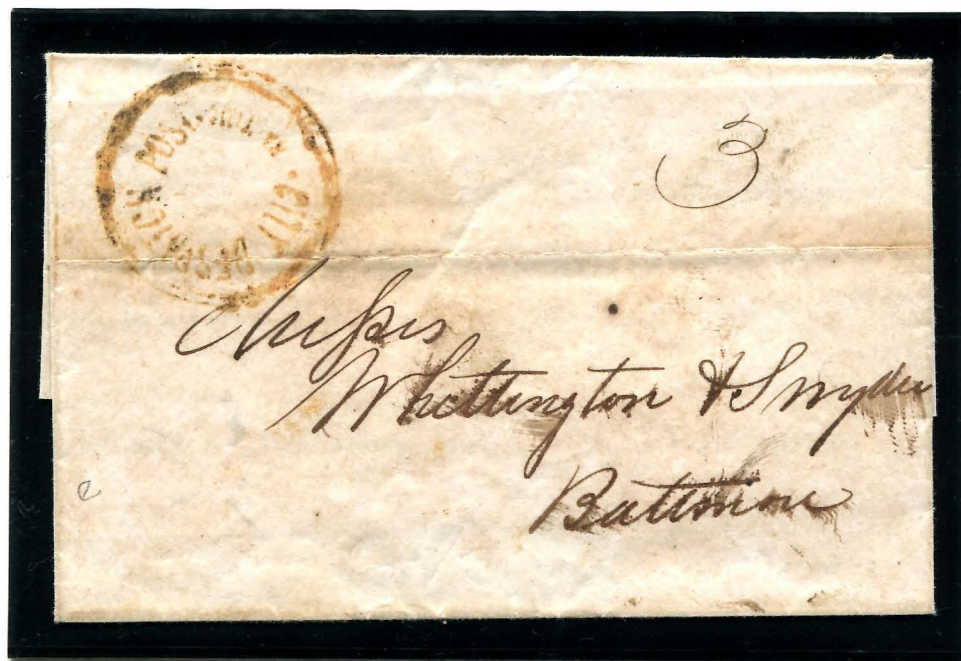 CITY DESPATCH POST
3
Messrs
Whettington & Snyder
Baltimore
e